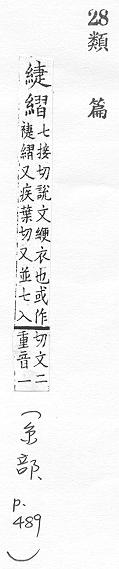 28 類 篇
緁䌌
七接切說文緶衣也或作
䌌又疾葉切又並七入
切文二
重音一
(糸部, p. 489)